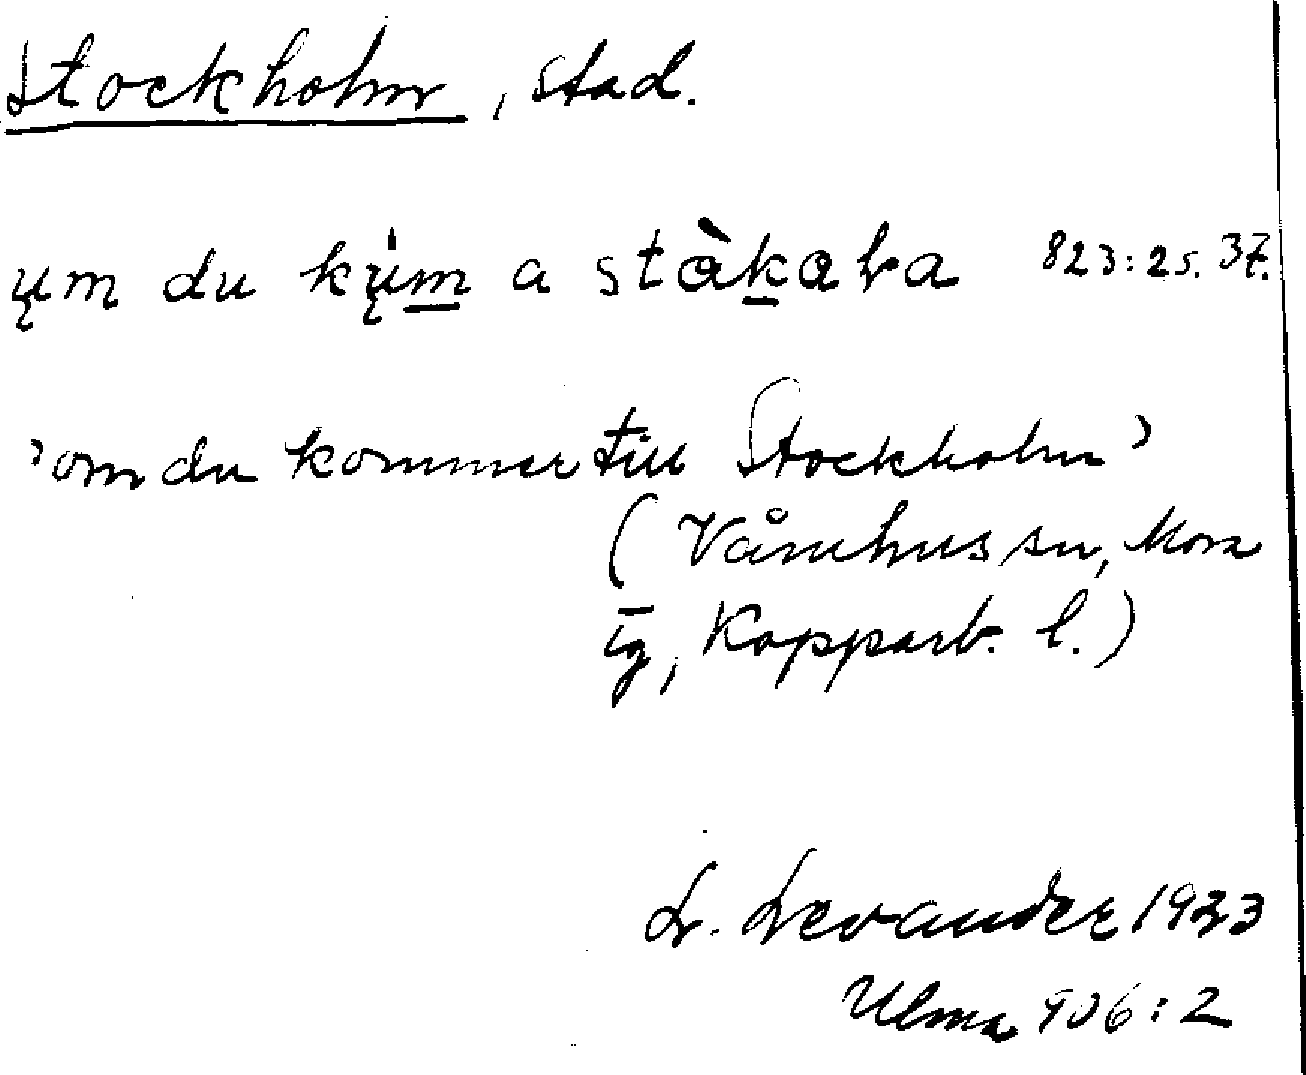 Stockholm, stad.
ųm du kų̍m̲ a stàk̲aƚa 823:25.37.
'om du kommer till Stockholm'
(Våmhus sn, Mora
tg, Kopparb. l.)
L. Levander 1933
Ulma 906:2